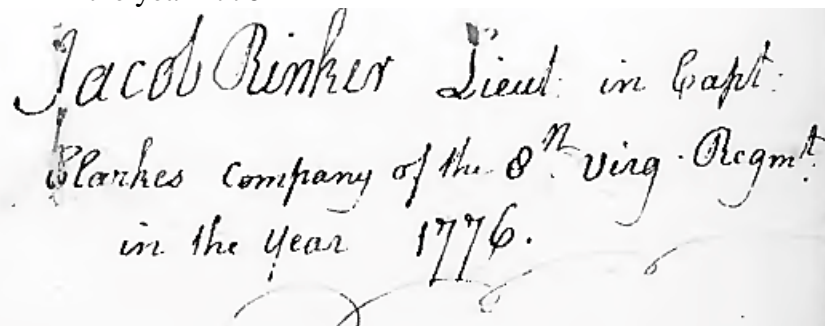 Jacob Rinker Lieut: in Capt:
Clarkes Company of the 8th. Virg. Regmt.
in the year 1776.